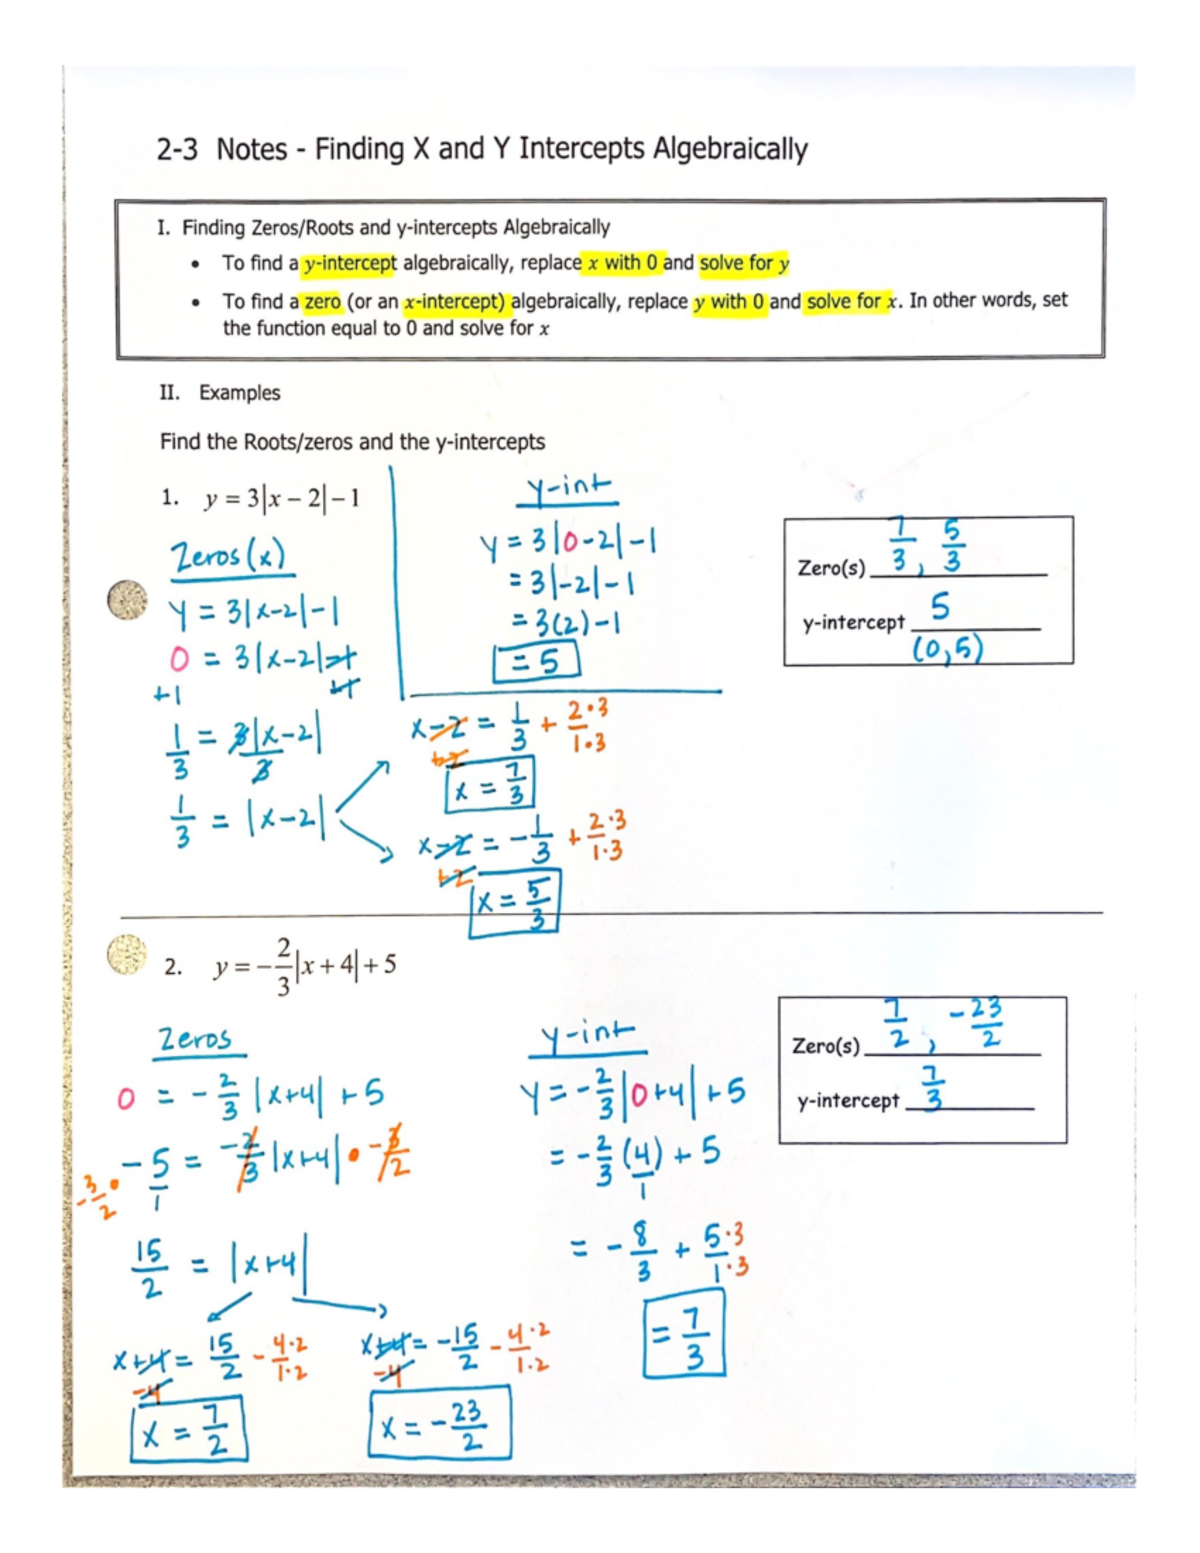 2-3 Notes - Finding X and Y Intercepts Algebraically
I. Finding Zeros/Roots and y-intercepts Algebraically
• To find a y-intercept algebraically, replace x with 0 and solve for y
• To find a zero (or an x-intercept) algebraically, replace y with 0 and solve for x. In other words, set
the function equal to 0 and solve for x
II. Examples
Find the Roots/zeros and the y-intercepts
1. y = 3|x − 2| − 1
Zeros (x)
y = 3|x-2|-1
0 = 3|x-2|-1
+1 +1
1/3 = 3|x-2|/3
1/3 = |x-2|
y-int
y = 3|0-2|-1
= 3|-2|-1
= 3(2)-1
= 5
x-2 = 1/3 + 2·3/1·3
+2
x = 7/3
x-2 = -1/3 + 2·3/1·3
+2
x = 5/3
Zero(s) 7/3, 5/3
y-intercept 5
(0,5)
2. y = −2/3|x + 4| + 5
Zeros
0 = -2/3 |x+4| +5
-3/2 · -5/1 = -2/3 |x+4| · -3/2
15/2 = |x+4|
x+4 = 15/2 - 4·2/1·2
-4
x = 7/2
x+4 = -15/2 - 4·2/1·2
-4
x = -23/2
y-int
y = -2/3 |0+4| +5
= -2/3 (4/1) + 5
= -8/3 + 5·3/1·3
= 7/3
Zero(s) 7/2, -23/2
y-intercept 7/3